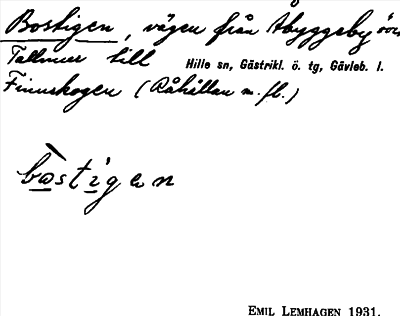 Bostigen, vägen från Åbyggeby över
Tallmur till Hille sn, Gästrikl. ö. tg, Gävleb. l.
Finnskogen (Råhällan m. fl.)
bo̲sti̲gen
EMIL LEMHAGEN 1931.